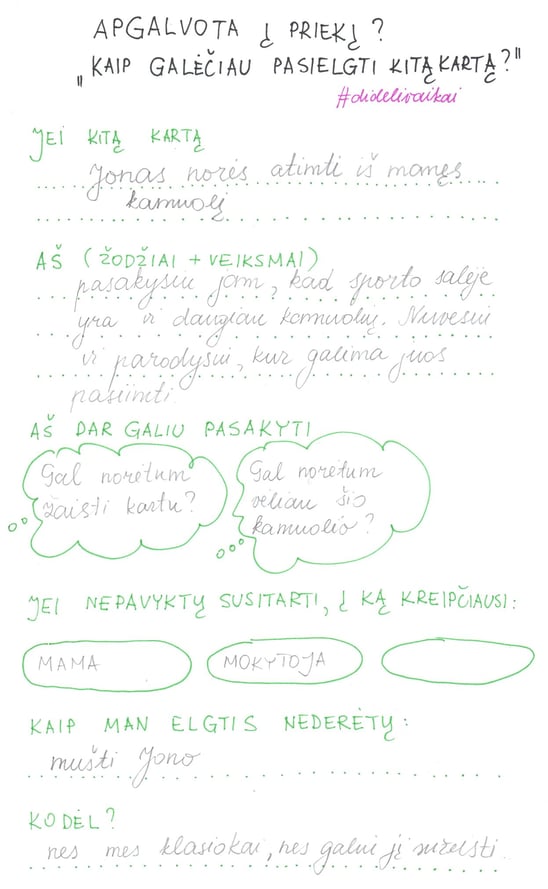 APGALVOTA Į PRIEKĮ?
„KAIP GALĖČIAU PASIELGTI KITĄ KARTĄ?"
#didelivaikai
JEI KITĄ KARTĄ
Jonas norės atimti iš manęs
kamuolį
AŠ (ŽODŽIAI + VEIKSMAI)
pasakysiu jam, kad sporto salėje
yra ir daugiau kamuolių. Nuvesiu
ir parodysiu, kur galima juos
pasiimti.
AŠ DAR GALIU PASAKYTI
Gal norėtum
žaisti kartu?
Gal norėtum
vėliau šio
kamuolio?
JEI NEPAVYKTŲ SUSITARTI, Į KĄ KREIPČIAUSI:
MAMA
MOKYTOJA
KAIP MAN ELGTIS NEDERĖTŲ:
mušti Jono
KODĖL?
nes mes klasiokai, nes galiu jį sužeisti